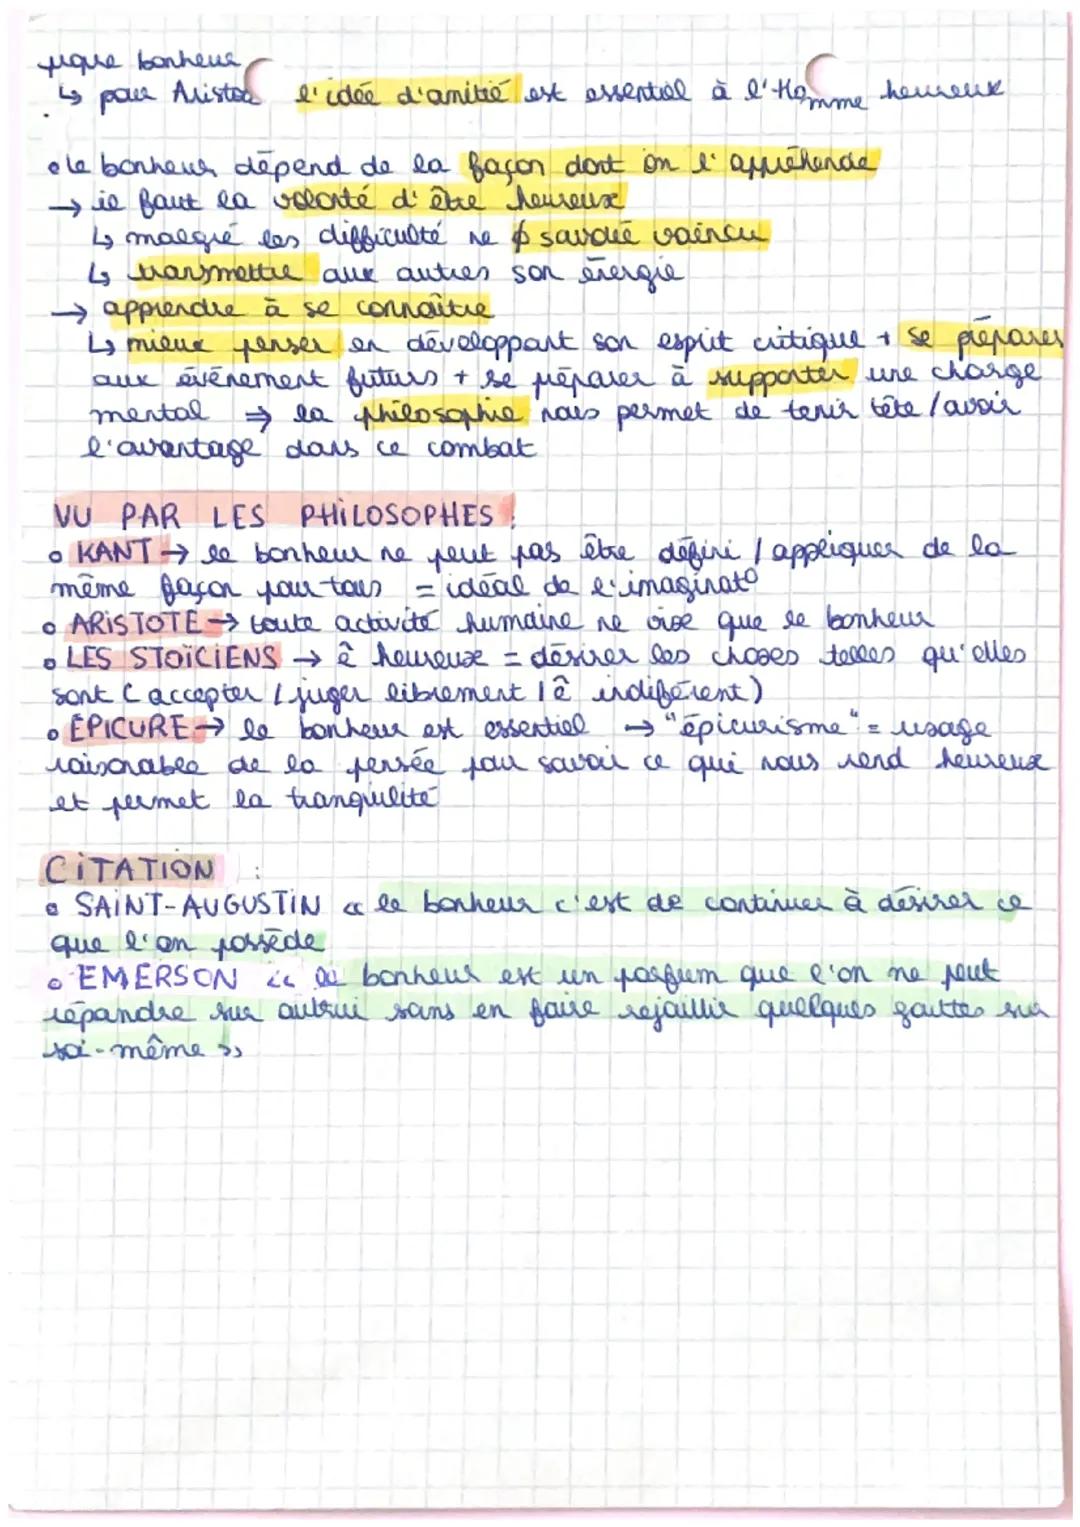 bonheur
↳ pour Aristo l'idée d'amitié est essentiel à l'Homme heureux
• le bonheur dépend de la façon dont on l'appréhende
→ il faut la volonté d'être heureux
↳ malgré les difficulté ne ∅ s'avouée vaincu
↳ transmettre aux autres son énergie
→ apprendre à se connaître
↳ mieux penser en développant son esprit critique + se préparer
aux événement futurs + se préparer à supporter une charge
mental ⇒ la philosophie nous permet de tenir tête / avoir
l'avantage dans ce combat
VU PAR LES PHILOSOPHES :
• KANT → le bonheur ne peut pas être défini / appliquer de la
même façon pour tous = idéal de l'imaginat°
• ARISTOTE → toute activité humaine ne vise que le bonheur
• LES STOÏCIENS → ê heureux = désirer les choses telles qu'elles
sont (accepter / juger librement / ê indiférent)
• ÉPICURE → le bonheur est essentiel → "épicurisme" = usage
raisonable de la pensée pour savoir ce qui nous rend heureux
et permet la tranquilité
CITATION :
• SAINT-AUGUSTIN « le bonheur c'est de continuer à désirer ce
que l'on possède
• EMERSON « le bonheur est un parfum que l'on ne peut
répandre sur autrui sans en faire rejaillir quelques gouttes sur
soi-même »